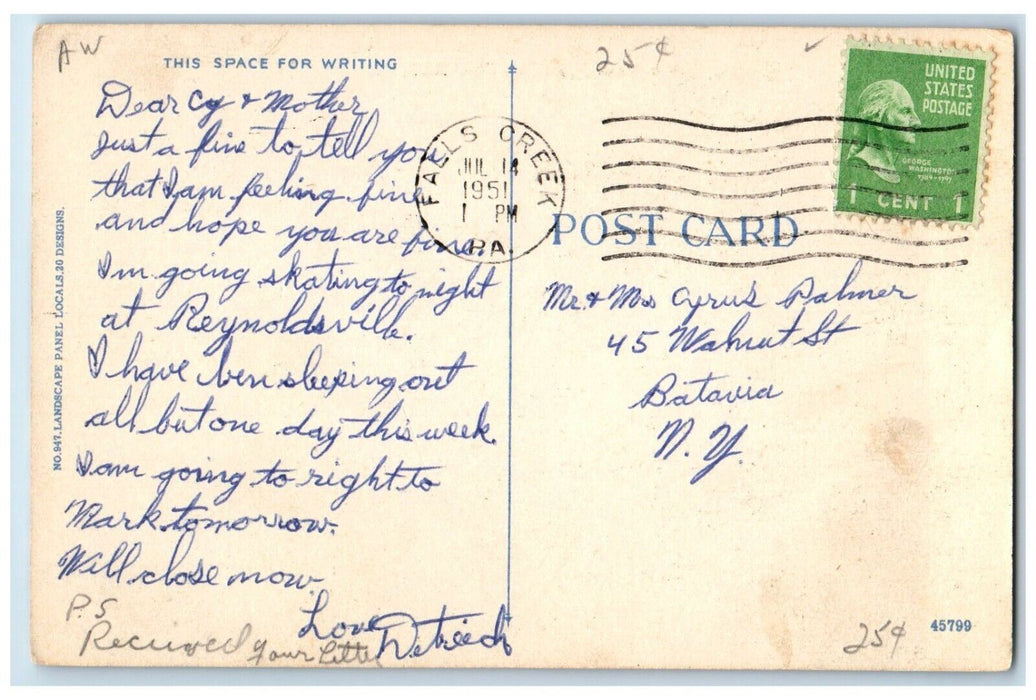 AW
THIS SPACE FOR WRITING
25¢
Dear Cy & Mother
Just a line to tell you
that I am feeling fine
and hope you are fine.
I'm going skating to night
at Reynoldsville.
I have ben sleeping out
all but one day this week.
I am going to right to
Mark tomorrow.
Will close now.
Love
P.S
Received your letter
NO. 947. LANDSCAPE PANEL LOCALS. 20 DESIGNS.
FALLS CREEK
JUL 14
1951
1 PM
PA.
UNITED
STATES
POSTAGE
GEORGE
WASHINGTON
1789-1797
1 CENT 1
POST CARD
Mr. & Mrs Cyrus Palmer
45 Walnut St
Batavia
N. Y.
25¢
45799